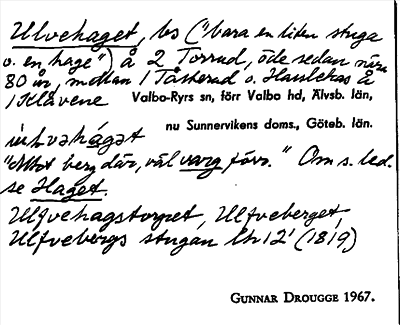 Ulvehaget, bs ("bara en liten stuga
o. en hage") å 2 Torrud, öde sedan nära
80 år, mellan 1 Tåskerud o. Haislehas å
1 Klåvene Valbo-Ryrs sn, förr Valbo hd, Älvsb. län,
nu Sunnervikens doms., Göteb. län.
"Mot berg där, väl varg förv." Om s. led.
se Haget.
Ulfvehagstorpet, Ulfveberget,
Ulfvebergs stugan Lhr 12' (1819)
GUNNAR DROUGGE 1967.